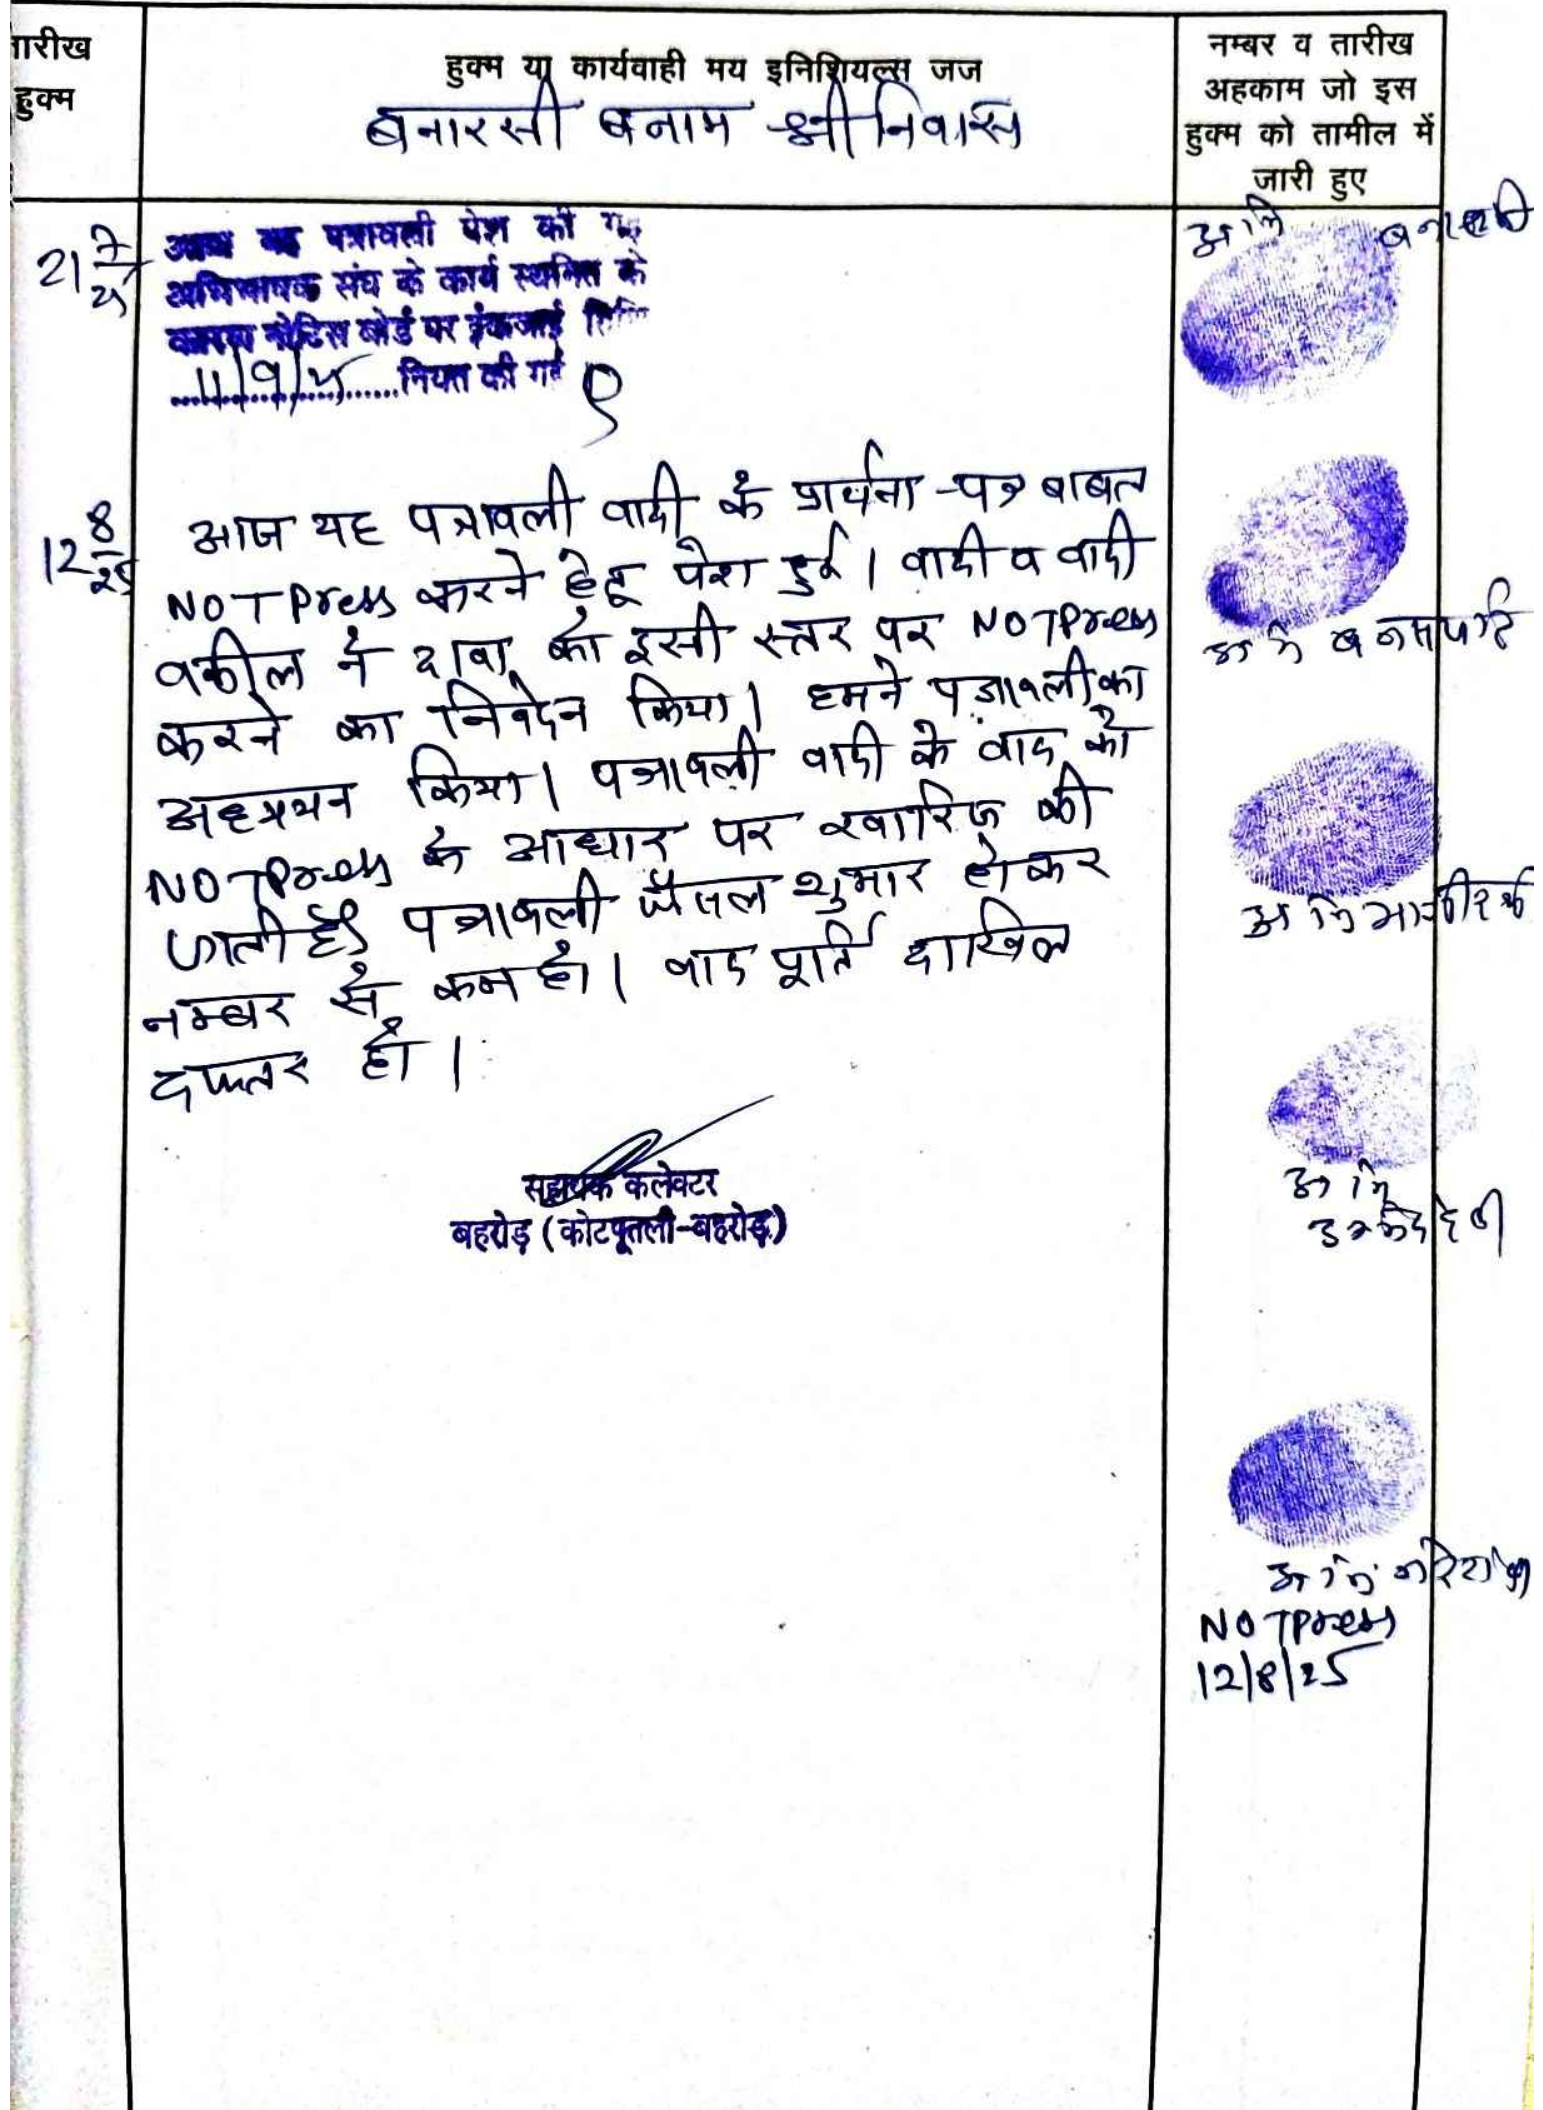 तारीख
हुक्म
हुक्म या कार्यवाही मय इनिशियल्स जज
बनारसी बनाम श्रीनिवास
नम्बर व तारीख
अहकाम जो इस
हुक्म को तामील में
जारी हुए
21 7/25
आज यह पत्रावली पेश की गई
अभिभाषक संघ के कार्य स्थगित के
कारण नोटिस बोर्ड पर इंकजाई तिथि
11/9/25 नियत की गई
12 8/25
आज यह पत्रावली वादी के प्रार्थना-पत्र बाबत
NOT Press करने हेतू पेश हुई। वादी व वादी
वकील ने दावा को इसी स्तर पर NOT Press
करने का निवेदन किया। हमने पत्रावली का
अध्ययन किया। पत्रावली वादी के वाद को
NOT Press के आधार पर खारिज की
जाती है। पत्रावली फैसल शुमार होकर
नम्बर से कम हो। वाद पूर्ति दाखिल
दफ्तर हो।
सहायक कलेक्टर
बहरोड़ (कोटपूतली-बहरोड़)
अ नि बनारसी
अ नि
अ नि
अ नि
देवी
अ नि
NOT Press
12/8/25